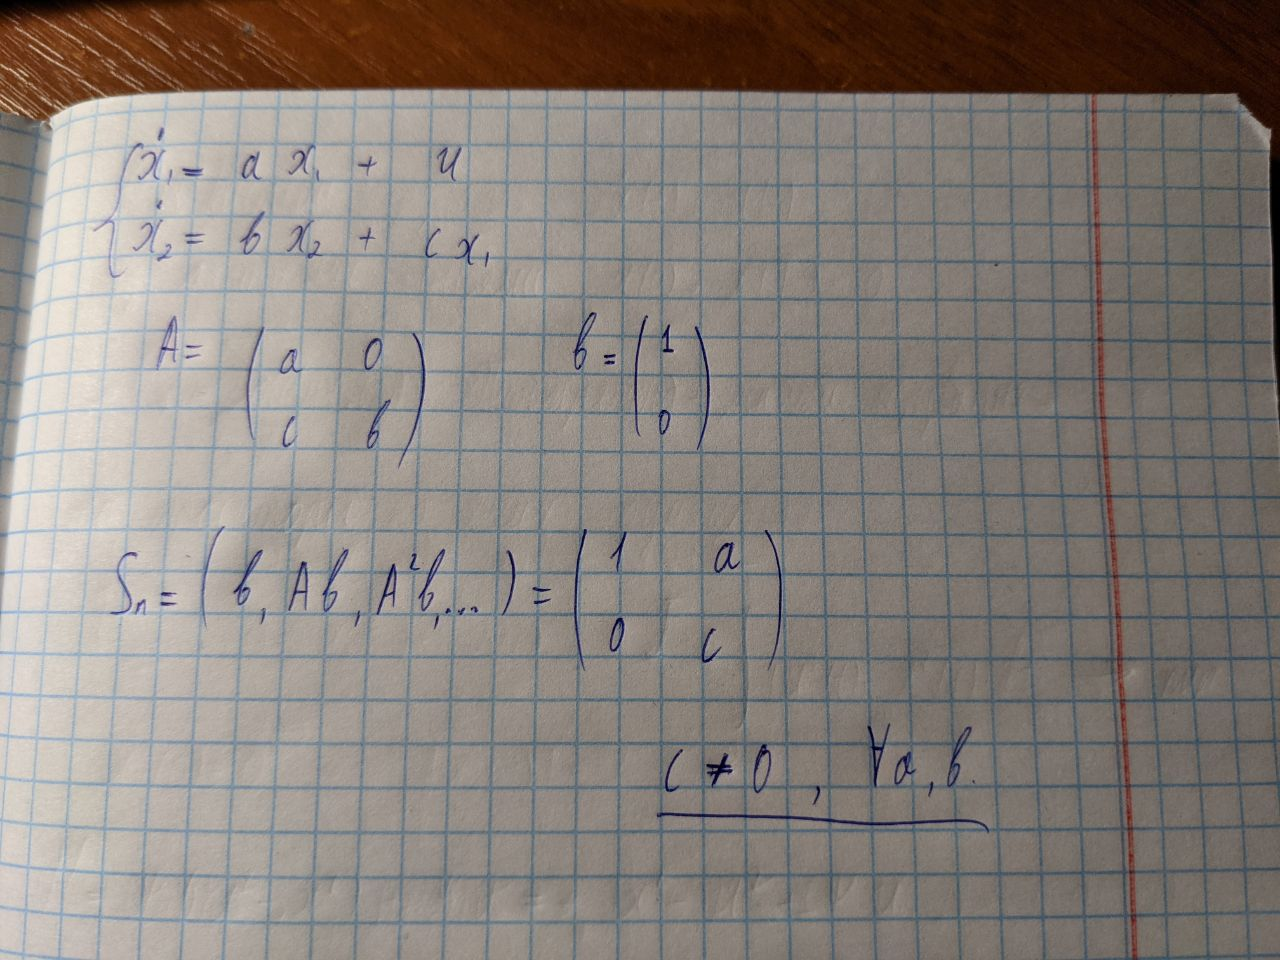 { ẋ₁ = a x₁ + u
ẋ₂ = b x₂ + c x₁
A = ( a 0 ; c b ) b = ( 1 ; 0 )
Sₙ = ( b, Ab, A²b, ... ) = ( 1 a ; 0 c )
c ≠ 0 , ∀a, b.